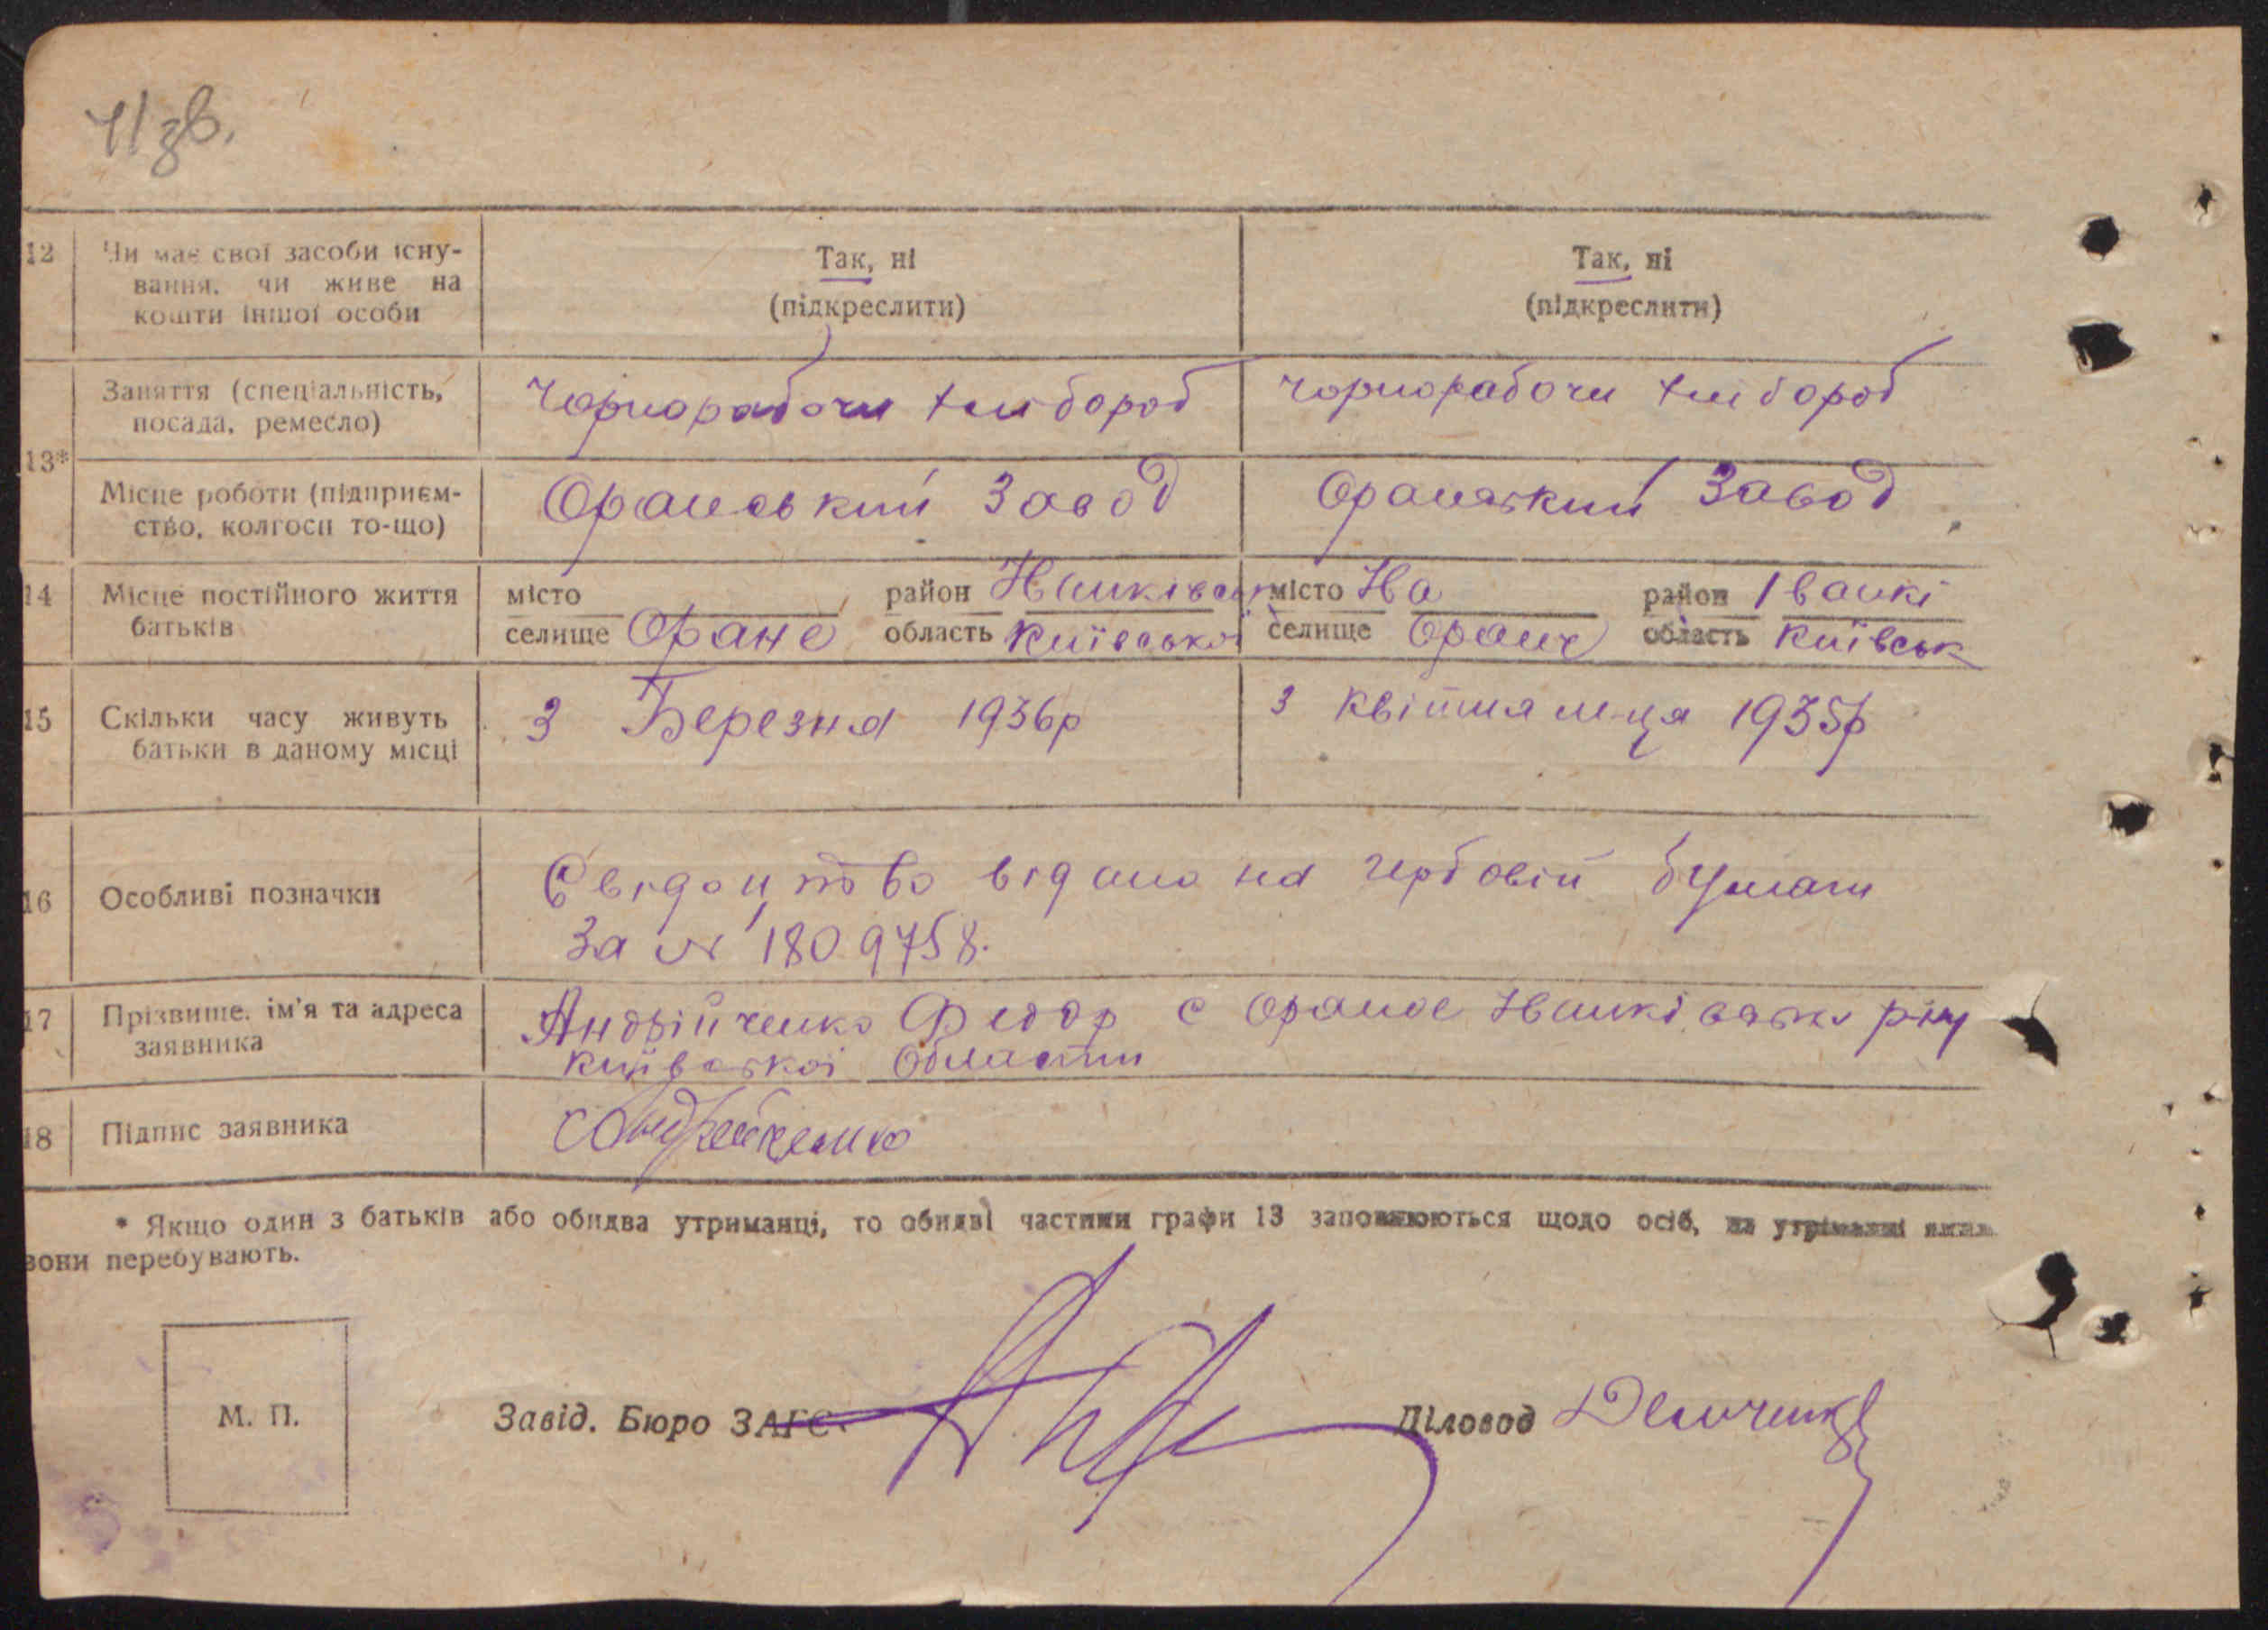 41зв.
12 Чи має свої засоби існу-
вання, чи живе на
кошти іншої особи
Так, ні
(підкреслити)
Так, ні
(підкреслити)
13*
Заняття (спеціальність,
посада, ремесло)
чорнорабочи
чорнорабочи
Місце роботи (підприєм-
ство, колгосп то-що)
Оранський Завод
Оранський Завод
14 Місце постійного життя
батьків
місто
селище Оране
район
область Київської
місто
селище Оране
район Іванкі
область Київськ
15 Скільки часу живуть
батьки в даному місці
З Березня 1936р
З квітня м-ця 1935р
16 Особливі позначки
Свідоцтво відано на гербовій бумаги
За № 1809758.
17 Прізвище, ім'я та адреса
заявника
Андрійченко Федор с Оране р-ну
київської области
18 Підпис заявника
* Якщо один з батьків або обидва утриманці, то обидві частини графи 13 заповнюються щодо осіб, на утриманні яких
вони перебувають.
М. П.
Завід. Бюро ЗАГС
Діловод